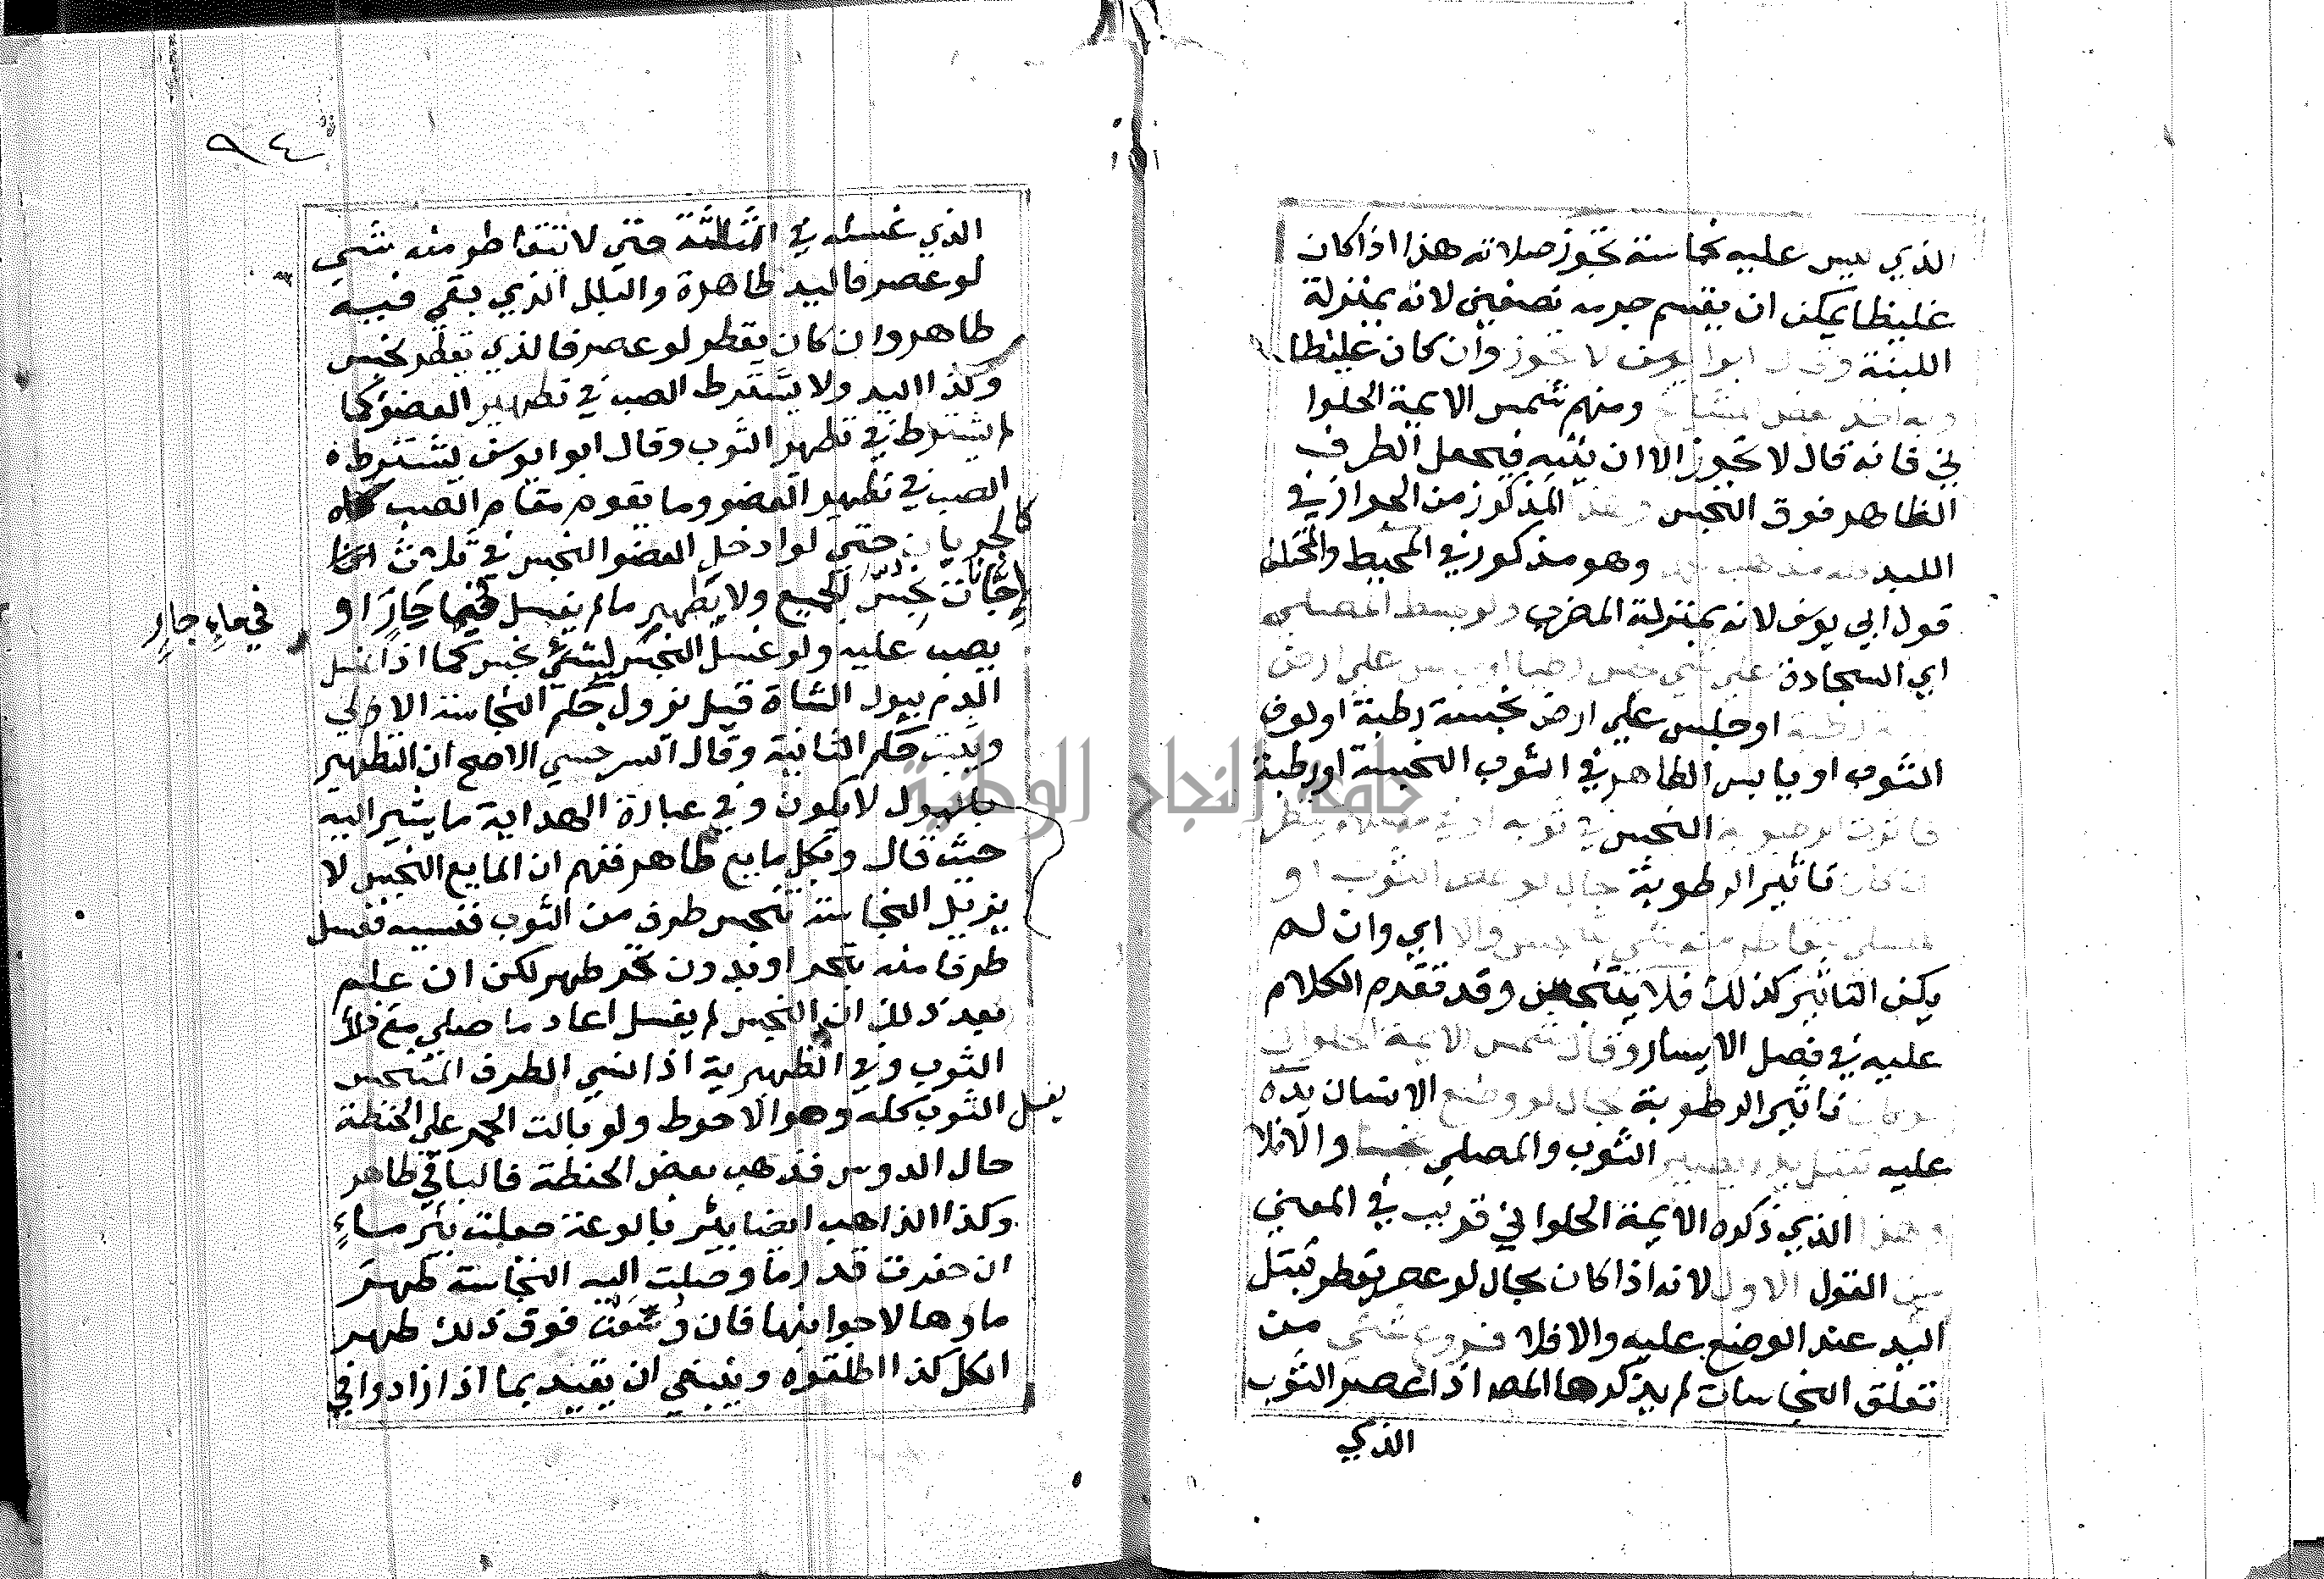 الذي ليس عليه نجاسة تجوز صلاته هذا اذا كان
غليظا يمكن ان يقسم جرمه نصفين لانه بمنزلة
اللبنة وقال ابو يوسف لا تجوز وان كان غليظا
وبه اخذ بعض المشايخ ومنهم شمس الايمة الحلوا
ني فانه قال لا تجوز الا ان يثنيه فيجعل الطرف
الطاهر فوق النجس وهذا المذكور من الجواز في
اللبد وهو مذكور في المحيط والمختلف
قول ابي يوسف لانه بمنزلة المضرب ولو بسط المصلي
اي السجادة علي شي نجس علي ارض
رطبة او جلس علي ارض نجسة رطبة او لوف
الثوب او يابس الطاهر في الثوب النجسة او رطبة
النجس في ثوبه
ان كان تاثير الرطوبة بحال لو عصر الثوب او
المصلي يتقاطر منه شي نجس والا اي وان لم
يكن التاثير كذلك فلا يتنجس وقد تقدم الكلام
عليه في فصل الايسار وقال شمس الايمة الحلواني
لو كان تاثير الرطوبة بحال لو وضع الانسان يده
عليه تبتل يده يصير الثوب والمصلي نجسا والا فلا
وهذا الذي ذكره الايمة الحلواني قريب في المعني
من القول الاول لانه اذا كان بحال لو عصر يقطر تبتل
اليد عند الوضع عليه والا فلا فروع شتي من
تعلق النجاسات لم يذكرها المص اذا عصر الثوب
الذي
٩٤
الذي غسله في الثالثة حتي لا يتقاطر منه شي
لو عصر فاليد طاهرة والبلل الذي بقي فيه
طاهر وان كان يقطر لو عصر فالذي تقطر نجس
وكذا اليد ولا يشترط الصب في تطهير العضو كما
اشترط في تطهر الثوب وقال ابو ايوسف يشترط
الصب في تطهير العضو وما يقوم مقام الصب
كالجريان حتي لو ادخل العضو النجس في ثلاث
اجانات نجس الجميع ولا يطهر ما لم يغسل جار او
في ماءٍ جارٍ
يصب عليه ولو غسل النجس لشيء نجس كما اذا غسل
الدم ببول الشاة قيل نزول حكم النجاسة الاولي
ويثبت حكم الثانية وقال السرخسي الاصح ان التطهير
بالبول لا يكون وفي عبارة الهداية ما يشير اليه
حيث قال وبكل مايع طاهر ففهم ان المايع النجس لا
يزيل النجاسة تنجس طرف من الثوب فنسيه فغسل
طرفا منه بتحر او بدون تحر طهر لكن ان علم
بعد ذلك ان النجس لم يغسل اعاد ما صلي مع ذلك
الثوب وفي الظهيرية اذا نسي الطرف المتنجس
يغسل الثوب كله وهو الاحوط ولو بالت الحمر علي الحنطة
حال الدوس فذهب بعض الحنطة فالباقي طاهر
وكذا الذاهب ايضا بئر بالوعة جعلت بئر ماءٍ
ان حفرت قدر ما وصلت اليه النجاسة طهر
ماؤها لا جوانبها فان وُسّعت فوق ذلك طهر
الكل كذا اطلقوه وينبغي ان يقيد بما اذا زادوا في
جامعة النجاح الوطنية